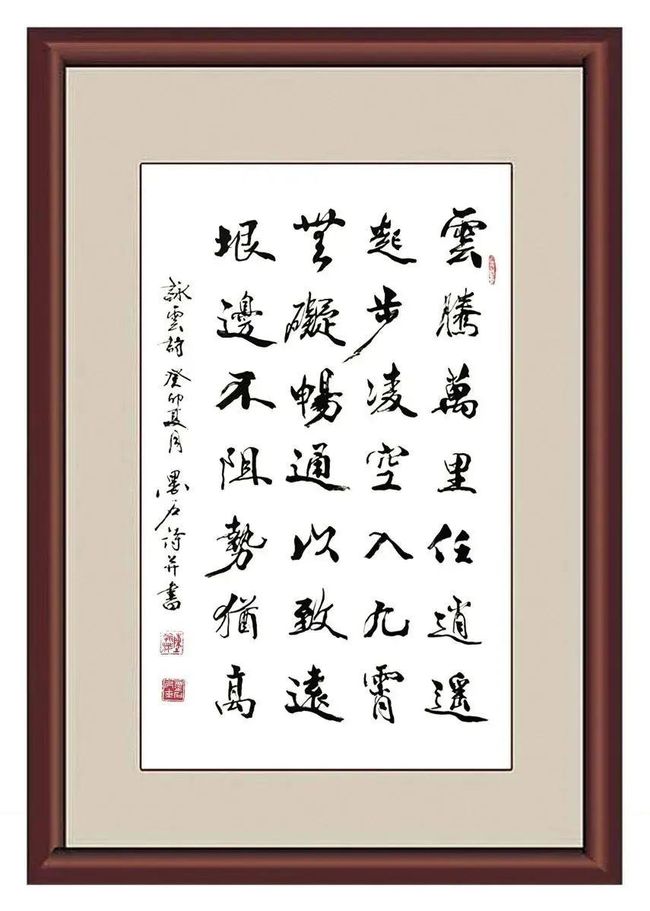 雲騰萬里任逍遥
起步凌空入九霄
無礙暢通以致遠
垠邊不阻勢猶高
詠雲詩 癸卯夏月 墨石詩并書